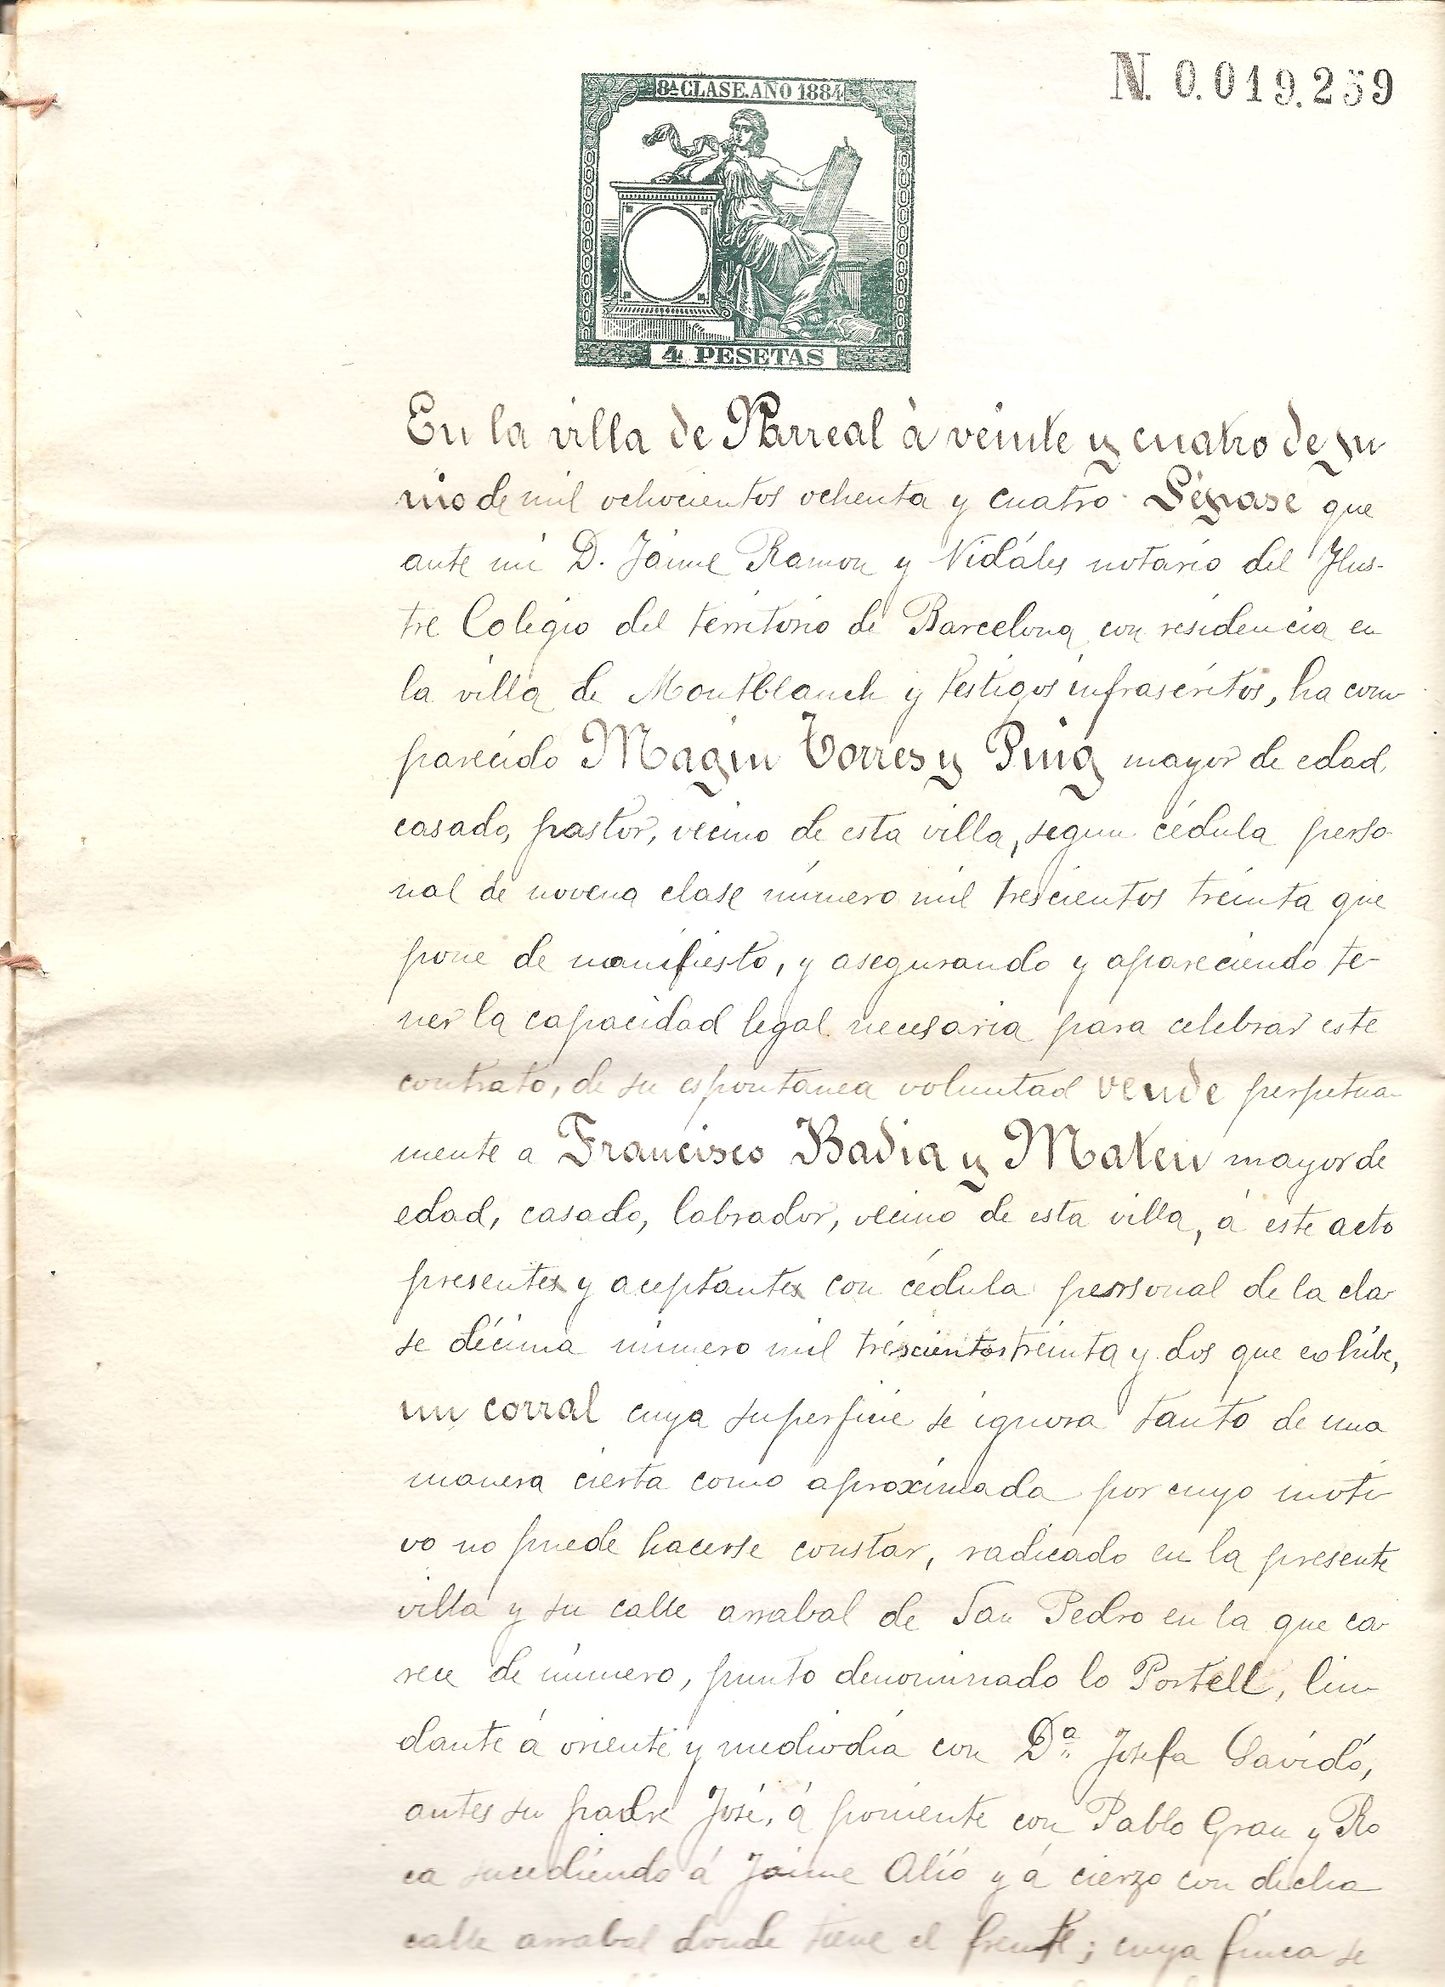 N. 0.019.259
8ª CLASE. AÑO 1884
4 PESETAS
En la villa de Parreal à veinte y cuatro de ju-
nio de mil ochocientos ochenta y cuatro. Sépase que
ante mi D. Jaime Ramon y Vidáles notario del Ilus-
tre Colegio del territorio de Barcelona con residencia en
la villa de Montblanch y testigos infrascritos, ha com-
parecido Magin Torres y Puig mayor de edad,
casado, pastor, vecino de esta villa, segun cédula perso-
nal de novena clase número mil trescientos treinta que
pone de manifiesto, y asegurando y apareciendo te-
ner la capacidad legal necesaria para celebrar este
contrato, de su espontanea voluntad vende perpetua-
mente a Francisco Badia y Mateu mayor de
edad, casado, labrador, vecino de esta villa, á este acto
presente y aceptante con cédula personal de la cla-
se décima número mil trescientos treinta y dos que exhibe,
un corral cuya superficie se ignora tanto de una
manera cierta como aproximada por cuyo moti-
vo no puede hacerse constar, radicado en la presente
villa y su calle arrabal de San Pedro en la que ca-
rece de número, punto denominado lo Portell, lin-
dante á oriente y mediodia con Dª Josefa Gavidó,
antes su padre José, á poniente con Pablo Grau y Ro-
ca sucediendo á Jaime Alió y á cierzo con dicha
calle arrabal donde tiene el frente; cuya finca se